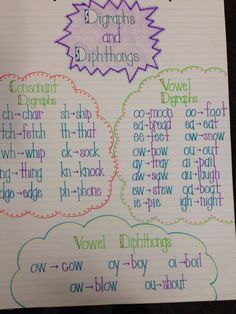 Digraphs
and
Diphthongs
Consonant
Digraphs
ch→chair sh→ship
tch→fetch th→that
wh→whip ck→sock
ng→thing kn→knock
dge→edge ph→phone
Vowel
Digraphs
oo→moon oo→foot
ea→bread ea→eat
ee→ ow→snow
ow→how ou→out
ay→tray ai→pail
aw→saw au→laugh
ew→stew oa→boat
ie→pie igh→night
Vowel Diphthongs
ow→cow oy→boy oi→boil
ow→blow ou→shout